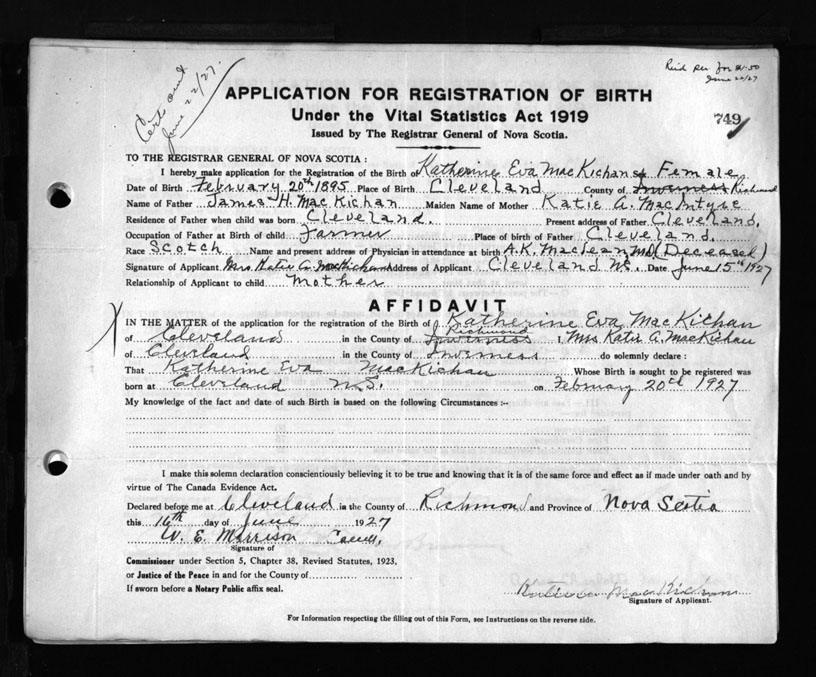 Certs sent
June 22/27.
Reid Rec. for
June 22/27
APPLICATION FOR REGISTRATION OF BIRTH
Under the Vital Statistics Act 1919
749
Issued by The Registrar General of Nova Scotia.
TO THE REGISTRAR GENERAL OF NOVA SCOTIA :
I hereby make application for the Registration of the Birth of Katherine Eva MacKichan Sex Female
Date of Birth February 20th 1895 Place of Birth Cleveland County of Inverness Richmond
Name of Father James H. MacKichan Maiden Name of Mother Katie A. MacIntyre
Residence of Father when child was born Cleveland. Present address of Father Cleveland.
Occupation of Father at Birth of child Farmer Place of birth of Father Cleveland.
Race Scotch Name and present address of Physician in attendance at birth A.K. MacLean MD (Deceased)
Signature of Applicant Mrs Katie A. MacKichan Address of Applicant Cleveland N.S. Date June 15th 1927
Relationship of Applicant to child Mother
AFFIDAVIT
IN THE MATTER of the application for the registration of the Birth of Katherine Eva MacKichan
of Cleveland in the County of Inverness Richmond I, Mrs Katie A. MacKichan
of Cleveland in the County of Inverness do solemnly declare :
That Katherine Eva MacKichan Whose Birth is sought to be registered was
born at Cleveland N.S. on February 20th 1927
My knowledge of the fact and date of such Birth is based on the following Circumstances :-
I make this solemn declaration conscientiously believing it to be true and knowing that it is of the same force and effect as if made under oath and by
virtue of The Canada Evidence Act.
Declared before me at Cleveland in the County of Richmond and Province of Nova Scotia
this 16th day of June 1927
W. E. Morrison
Signature of
Commissioner under Section 5, Chapter 38, Revised Statutes, 1923,
or Justice of the Peace in and for the County of
If sworn before a Notary Public affix seal.
MacKichan
Signature of Applicant.
For Information respecting the filling out of this Form, see Instructions on the reverse side.